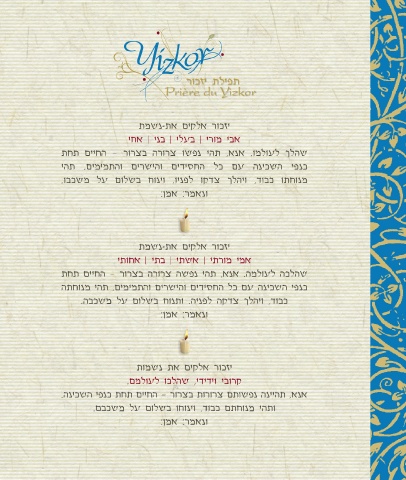 Yizkor
תפילת יזכור
Prière du Yizkor
יזכור אלקים את-נשמת
אבי מורי | בעלי | בני | אחי
שהלך לעולמו. אנא, תהי נפשו צרורה בצרור - החיים תחת
כנפי השכינה עם כל החסידים והישרים והתמימים, תהי
מנוחתו כבוד, ויהלך צדקו לפניו, וינוח בשלום על משכבו,
ונאמר: אמן:
יזכור אלקים את-נשמת
אמי מורתי | אשתי | בתי | אחותי
שהלכה לעולמה, אנא, תהי נפשה צרורה בצרור - החיים תחת
כנפי השכינה עם כל החסידים והישרים והתמימים, תהי מנוחתה
כבוד, ויהלך צדקה לפניה, ותנוח בשלום על משכבה,
ונאמר: אמן:
יזכור אלקים את נשמות
קרובי וידידי, שהלכו לעולמם,
אנא, תהיינה נפשותם צרורות בצרור - החיים תחת כנפי השכינה,
ותהי מנוחתם כבוד, וינוחו בשלום על משכבם,
ונאמר: אמן: